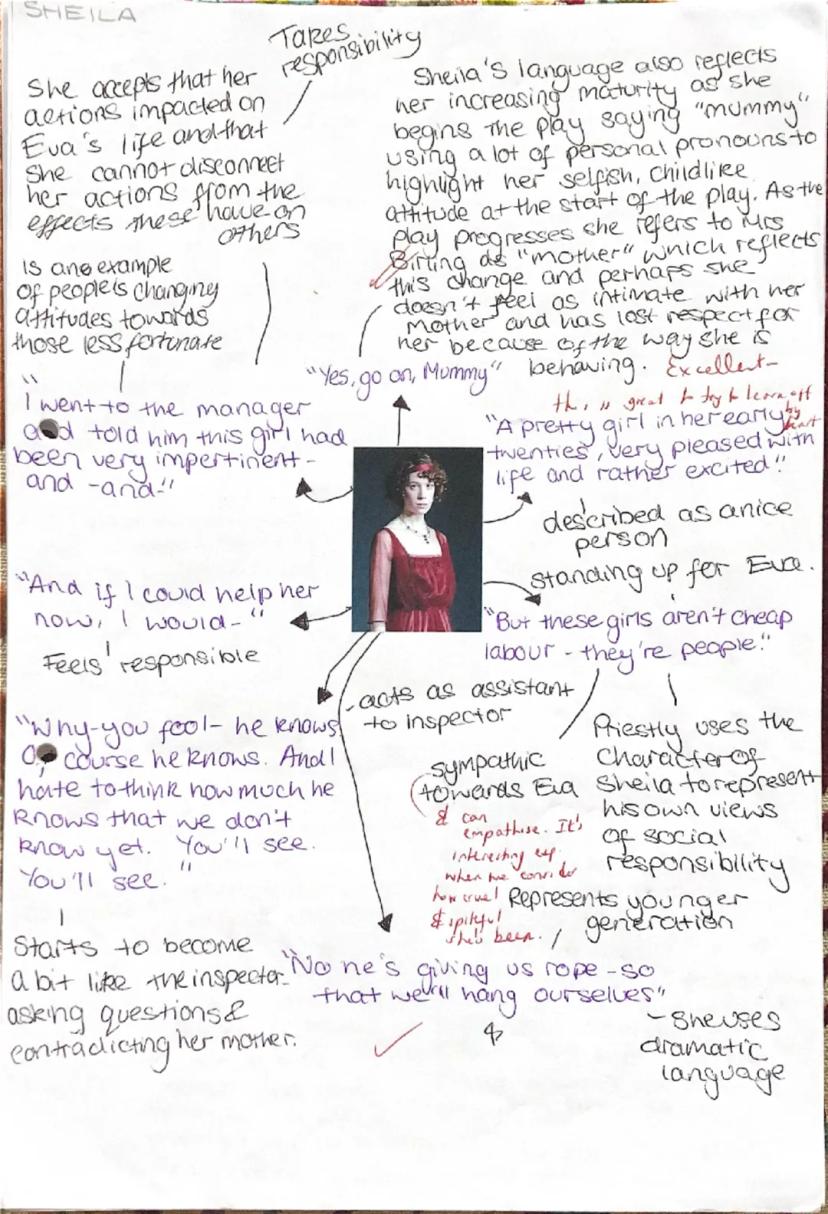 SHEILA
Takes
responsibility
She accepts that her
actions impacted on
Eva's life and that
she cannot disconnect
her actions from the
effects these have on
others
is an example
of people's changing
attitudes towards
those less fortunate
"
I went to the manager
and told him this girl had
been very impertinent -
and -and-"
"And if I could help her
now, I would-"
Feels responsible
"Why-you fool- he knows
Of course he knows. And I
hate to think how much he
knows that we don't
know yet. You'll see.
You'll see."
Starts to become
a bit like the inspector-
asking questions &
contradicting her mother.
Sheila's language also reflects
her increasing maturity as she
begins the play saying "mummy"
using a lot of personal pronouns to
highlight her selfish, childlike
attitude at the start of the play. As the
play progresses she refers to Mrs
Birling as "mother" which reflects
this change and perhaps she
doesn't feel as intimate with her
mother and has lost respect for
her because of the way she is
behaving.
Excellent -
this is great to try to learn off
by heart
"Yes, go on, Mummy"
"A pretty girl in her early
twenties, very pleased with
life and rather excited."
described as a nice
person
standing up for Eva.
"But these girls aren't cheap
labour - they're people."
-acts as assistant
to inspector
sympathic
towards Eva
& can
empathise. It's
interesting esp.
when we consider
how cruel
& spiteful
she's been.
Priestly uses the
character of
Sheila to represent
his own views
of social
responsibility
Represents younger
generation
"No he's giving us rope - so
that we'll hang ourselves"
- She uses
dramatic
language